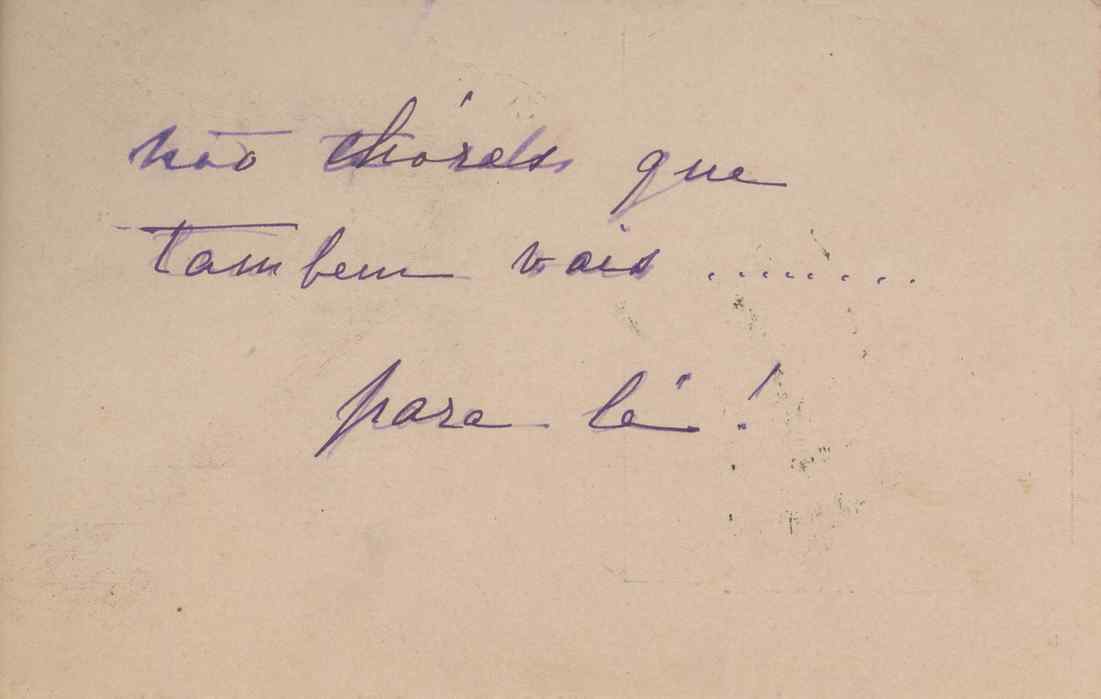 não chóreis que
tambem vais ........
para lá!